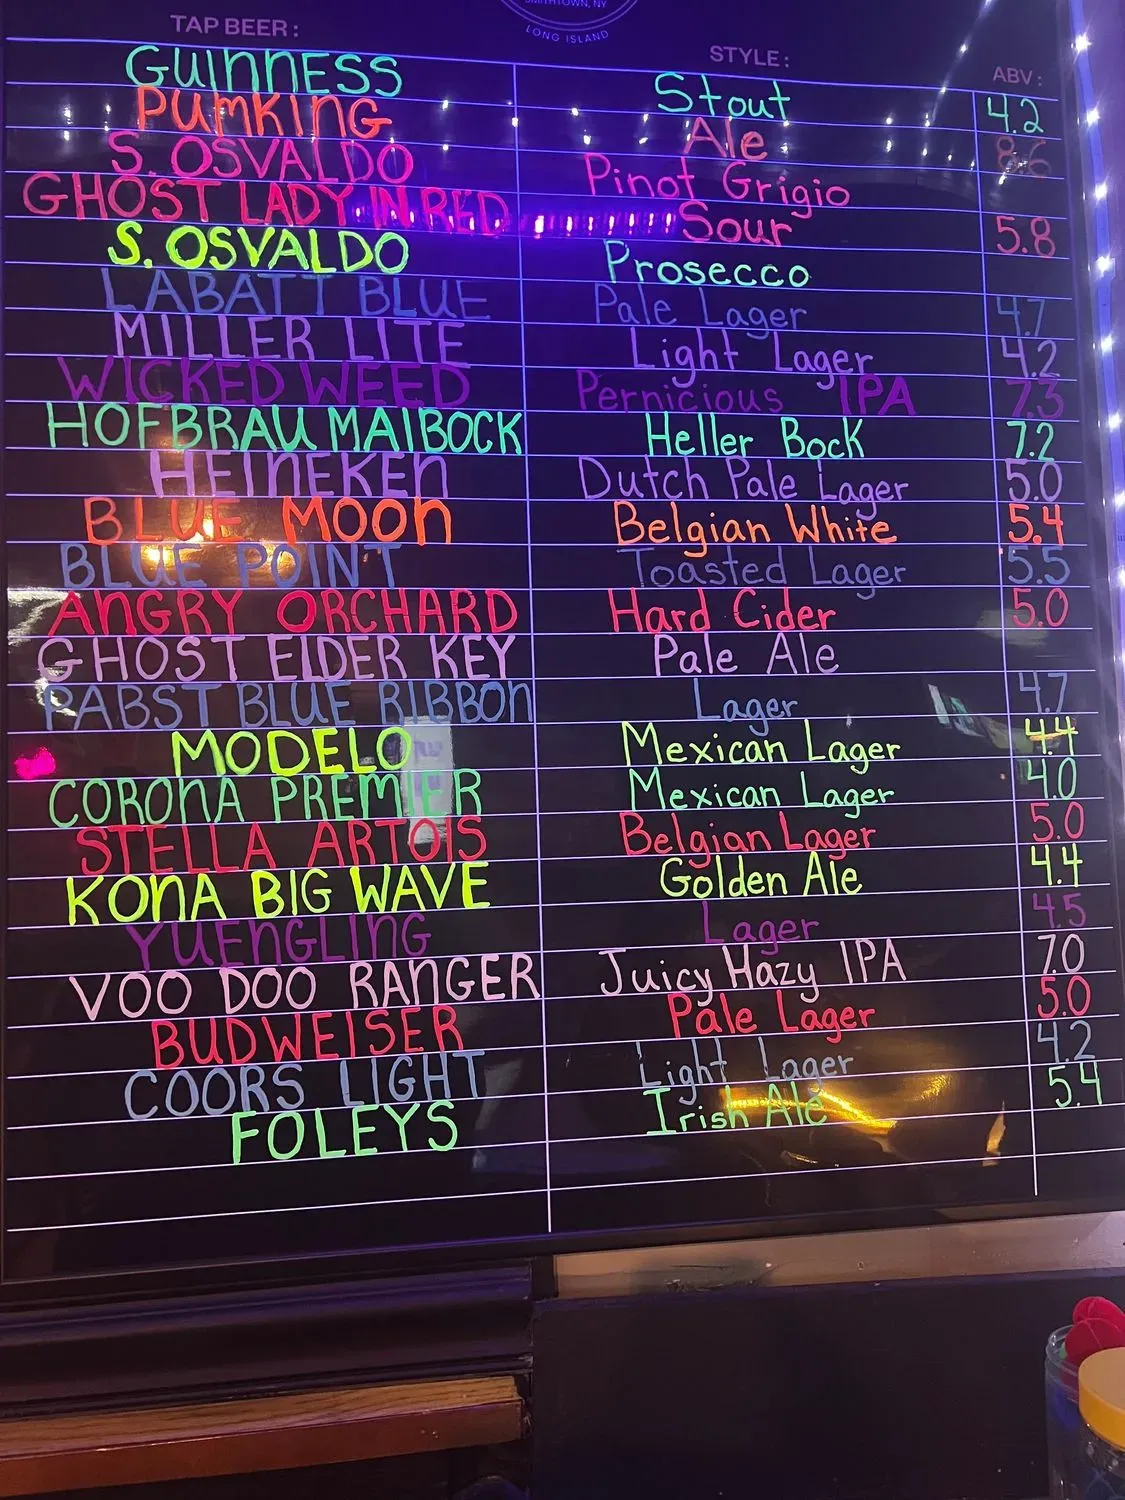 SMITHTOWN, NY
LONG ISLAND
TAP BEER: STYLE: ABV:
GUINNESS Stout 4.2
PUMKING Ale 8.6
S. OSVALDO Pinot Grigio
GHOST LADY IN RED Sour 5.8
S. OSVALDO Prosecco
LABATT BLUE Pale Lager 4.7
MILLER LITE Light Lager 4.2
WICKED WEED Pernicious IPA 7.3
HOFBRAU MAIBOCK Heller Bock 7.2
HEINEKEN Dutch Pale Lager 5.0
BLUE MOON Belgian White 5.4
BLUE POINT Toasted Lager 5.5
ANGRY ORCHARD Hard Cider 5.0
GHOST ELDER KEY Pale Ale
PABST BLUE RIBBON Lager 4.7
MODELO Mexican Lager 4.4
CORONA PREMIER Mexican Lager 4.0
STELLA ARTOIS Belgian Lager 5.0
KONA BIG WAVE Golden Ale 4.4
YUENGLING Lager 4.5
VOO DOO RANGER Juicy Hazy IPA 7.0
BUDWEISER Pale Lager 5.0
COORS LIGHT Light Lager 4.2
FOLEYS Irish Ale 5.4